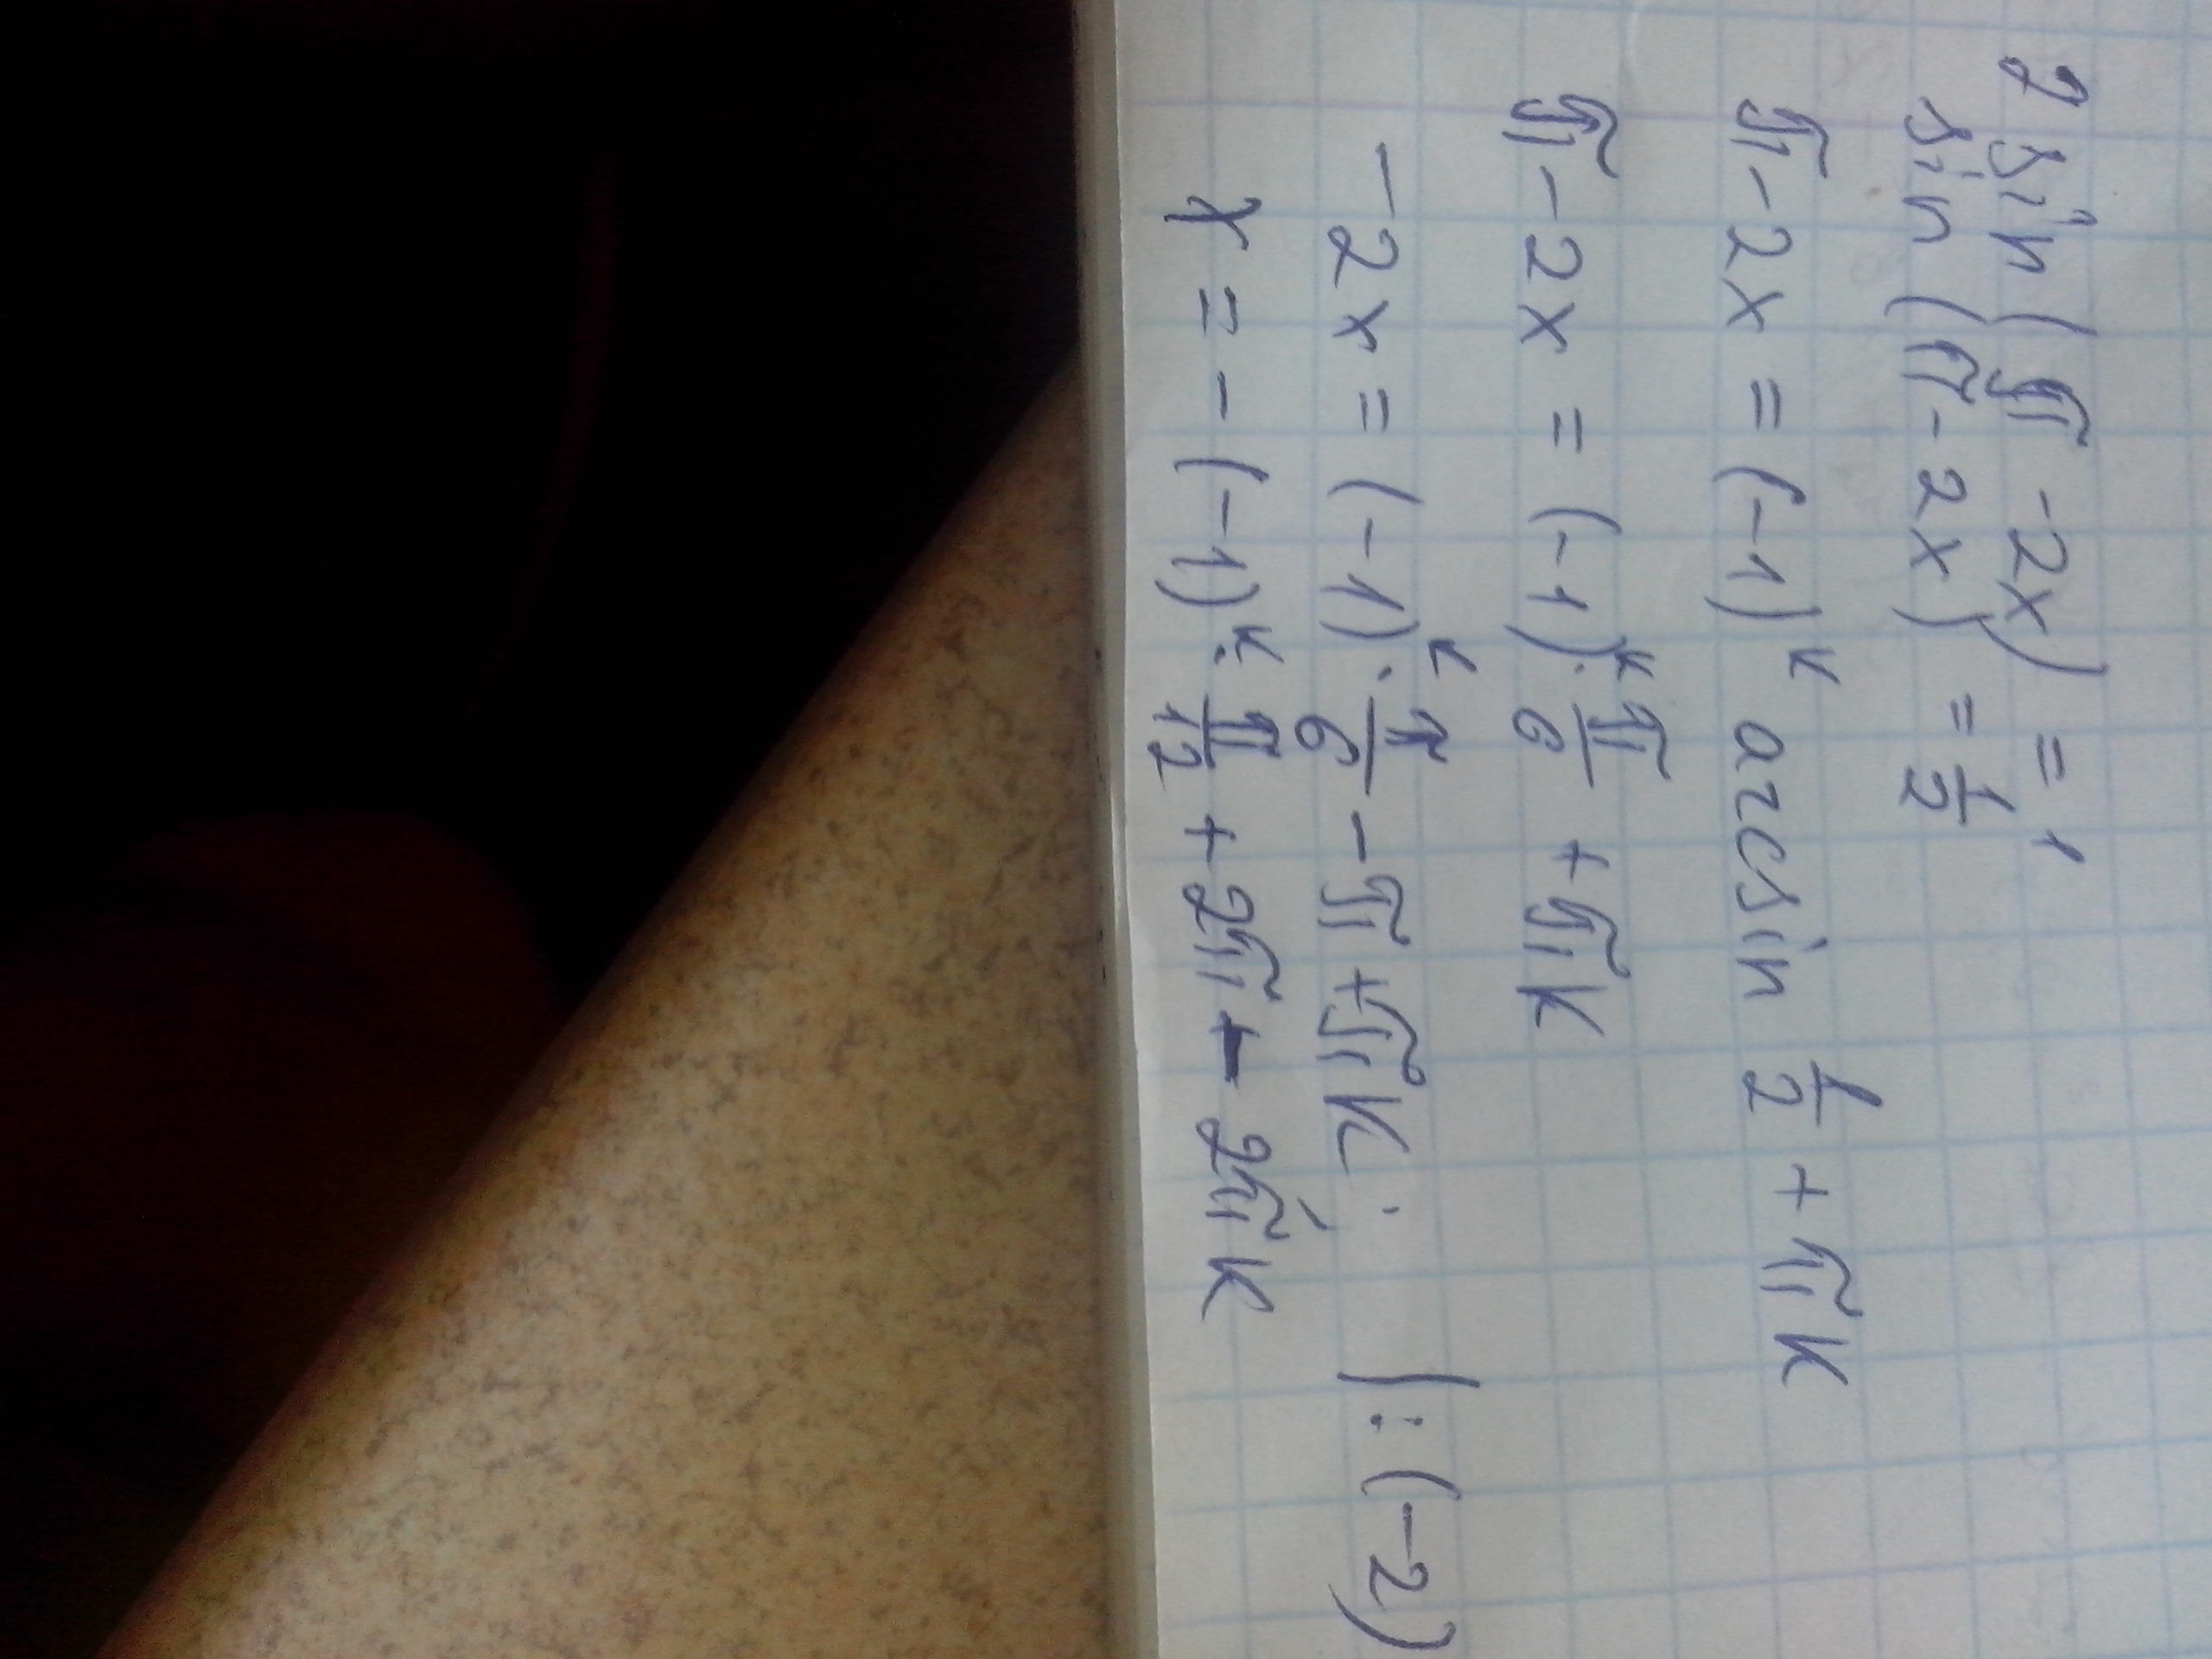 2 sin (π - 2x) = 1
sin (π - 2x) = 1/2
π - 2x = (-1)^k arcsin 1/2 + πk
π - 2x = (-1)^k · π/6 + πk
-2x = (-1)^k · π/6 - π + πk; |: (-2)
x = - (-1)^k · π/12 + 2π - 2πk